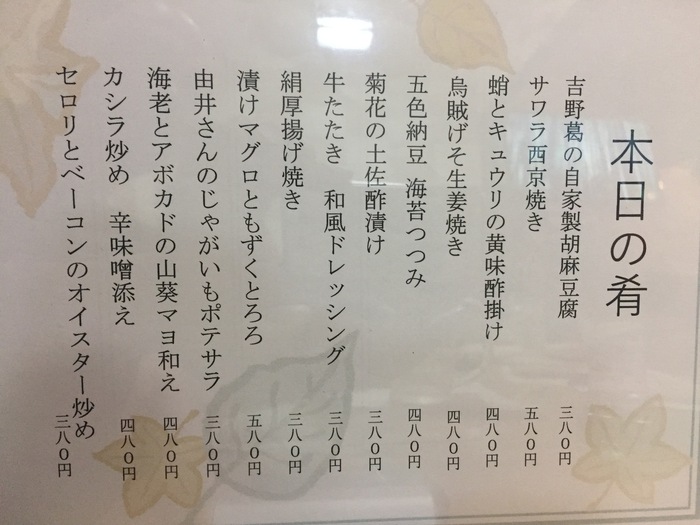 本日の肴
吉野葛の自家製胡麻豆腐 三八〇円
サワラ西京焼き 五八〇円
蛸とキュウリの黄味酢掛け 四八〇円
烏賊げそ生姜焼き 四八〇円
五色納豆 海苔つつみ 四八〇円
菊花の土佐酢漬け 三八〇円
牛たたき 和風ドレッシング 三八〇円
絹厚揚げ焼き 三八〇円
漬けマグロともずくとろろ 五八〇円
由井さんのじゃがいもポテサラ 三八〇円
海老とアボカドの山葵マヨ和え 四八〇円
カシラ炒め 辛味噌添え 四八〇円
セロリとベーコンのオイスター炒め 三八〇円